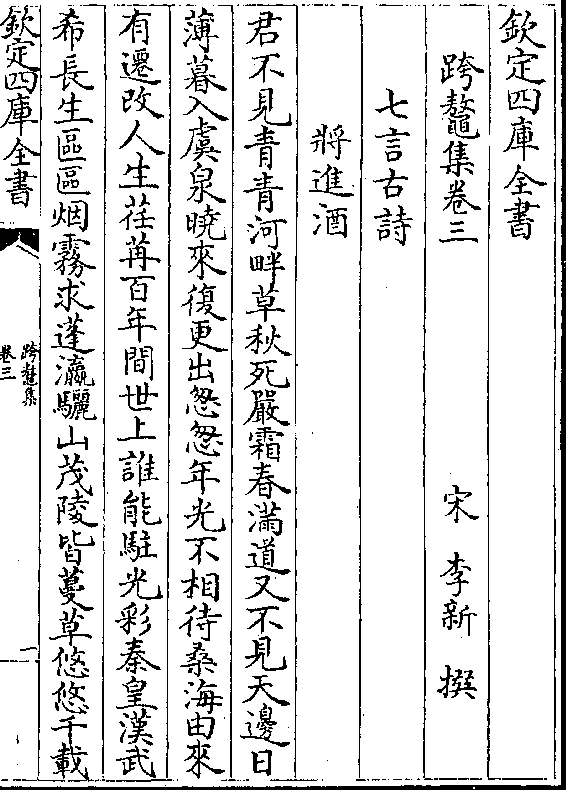 欽定四庫全書
跨鼇集卷三
宋 李新 撰
七言古詩
將進酒
君不見青青河畔草秋死嚴霜春滿道又不見天邊日
薄暮入虞泉曉來復更出怱怱年光不相待桑海由來
有遷改人生荏苒百年間世上誰能駐光彩秦皇漢武
希長生區區烟霧求蓬瀛驪山茂陵皆蔓草悠悠千載
欽定四庫全書
跨鼇集
卷三
一